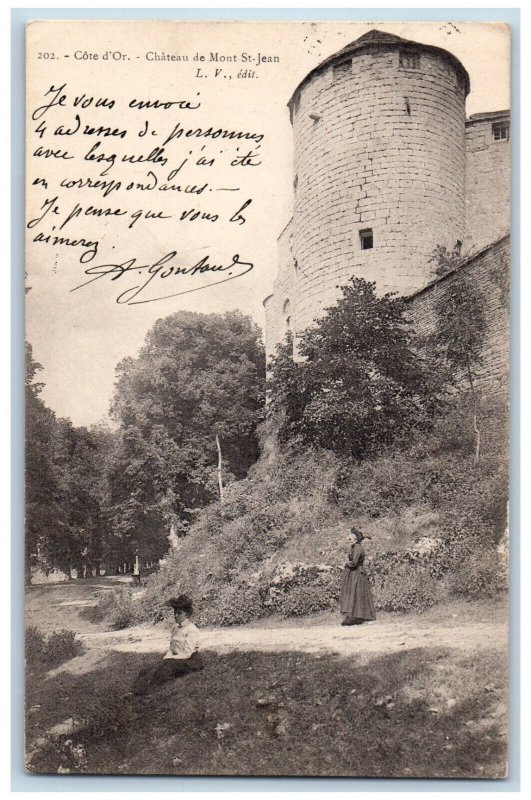 202. - Côte d'Or. - Château de Mont St-Jean
L. V., édit.
Je vous envoie
4 adresses de personnes
avec lesquelles j'ai été
en correspondances —
Je pense que vous les
aimerez.
A. Gontaud